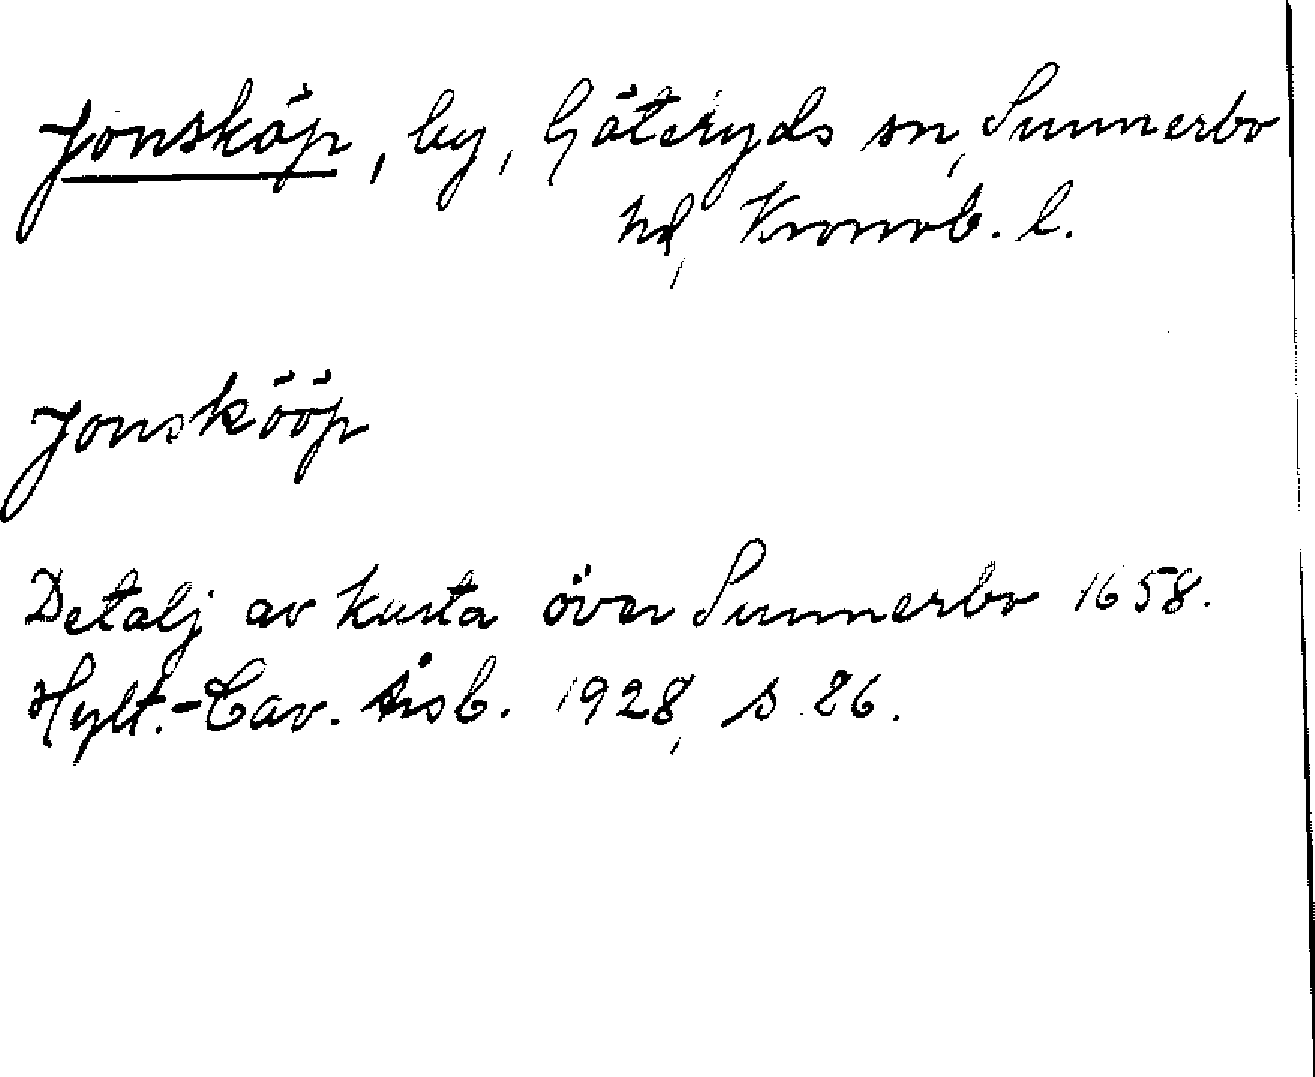 Jonsköp, by, Göteryds sn, Sunnerbo
hd, Kronob. l.
Jonskööp
Detalj av karta över Sunnerbo 1658.
Hylt.-Cav. Årsb. 1928, s. 86.